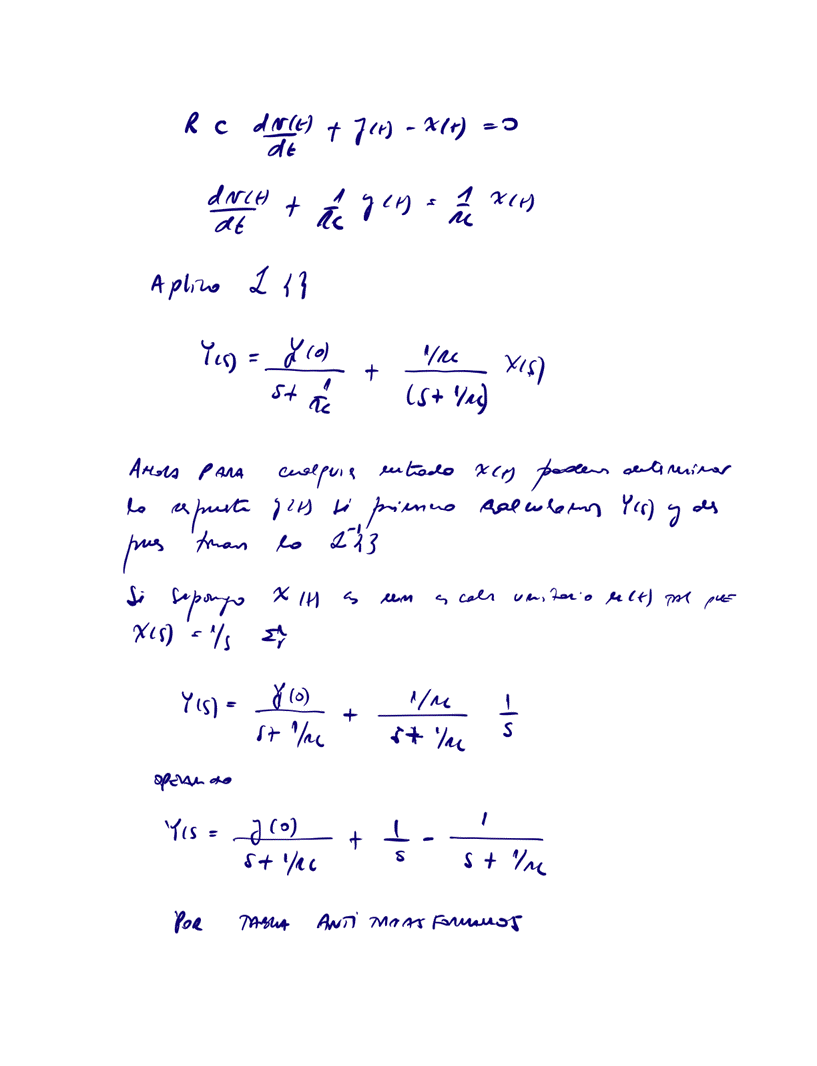 R C dv(t)/dt + y(t) - x(t) = 0
dv(t)/dt + 1/RC y(t) = 1/RC x(t)
Aplico L { }
Y(s) = y(0)/(s + 1/RC) + (1/RC)/(s + 1/RC) X(s)
Ahora PARA cualquier entrada x(t) podemos determinar
la respuesta y(t) si primero calculamos Y(s) y des
pues la L⁻¹{ }
Si supongo x(t) es un escalon unitario u(t) TAL QUE
X(s) = 1/s
Y(s) = y(0)/(s + 1/RC) + (1/RC)/(s + 1/RC) 1/s
OPERANDO
Y(s = y(0)/(s + 1/RC) + 1/s - 1/(s + 1/RC)
POR TABLA ANTITRANSFORMAMOS